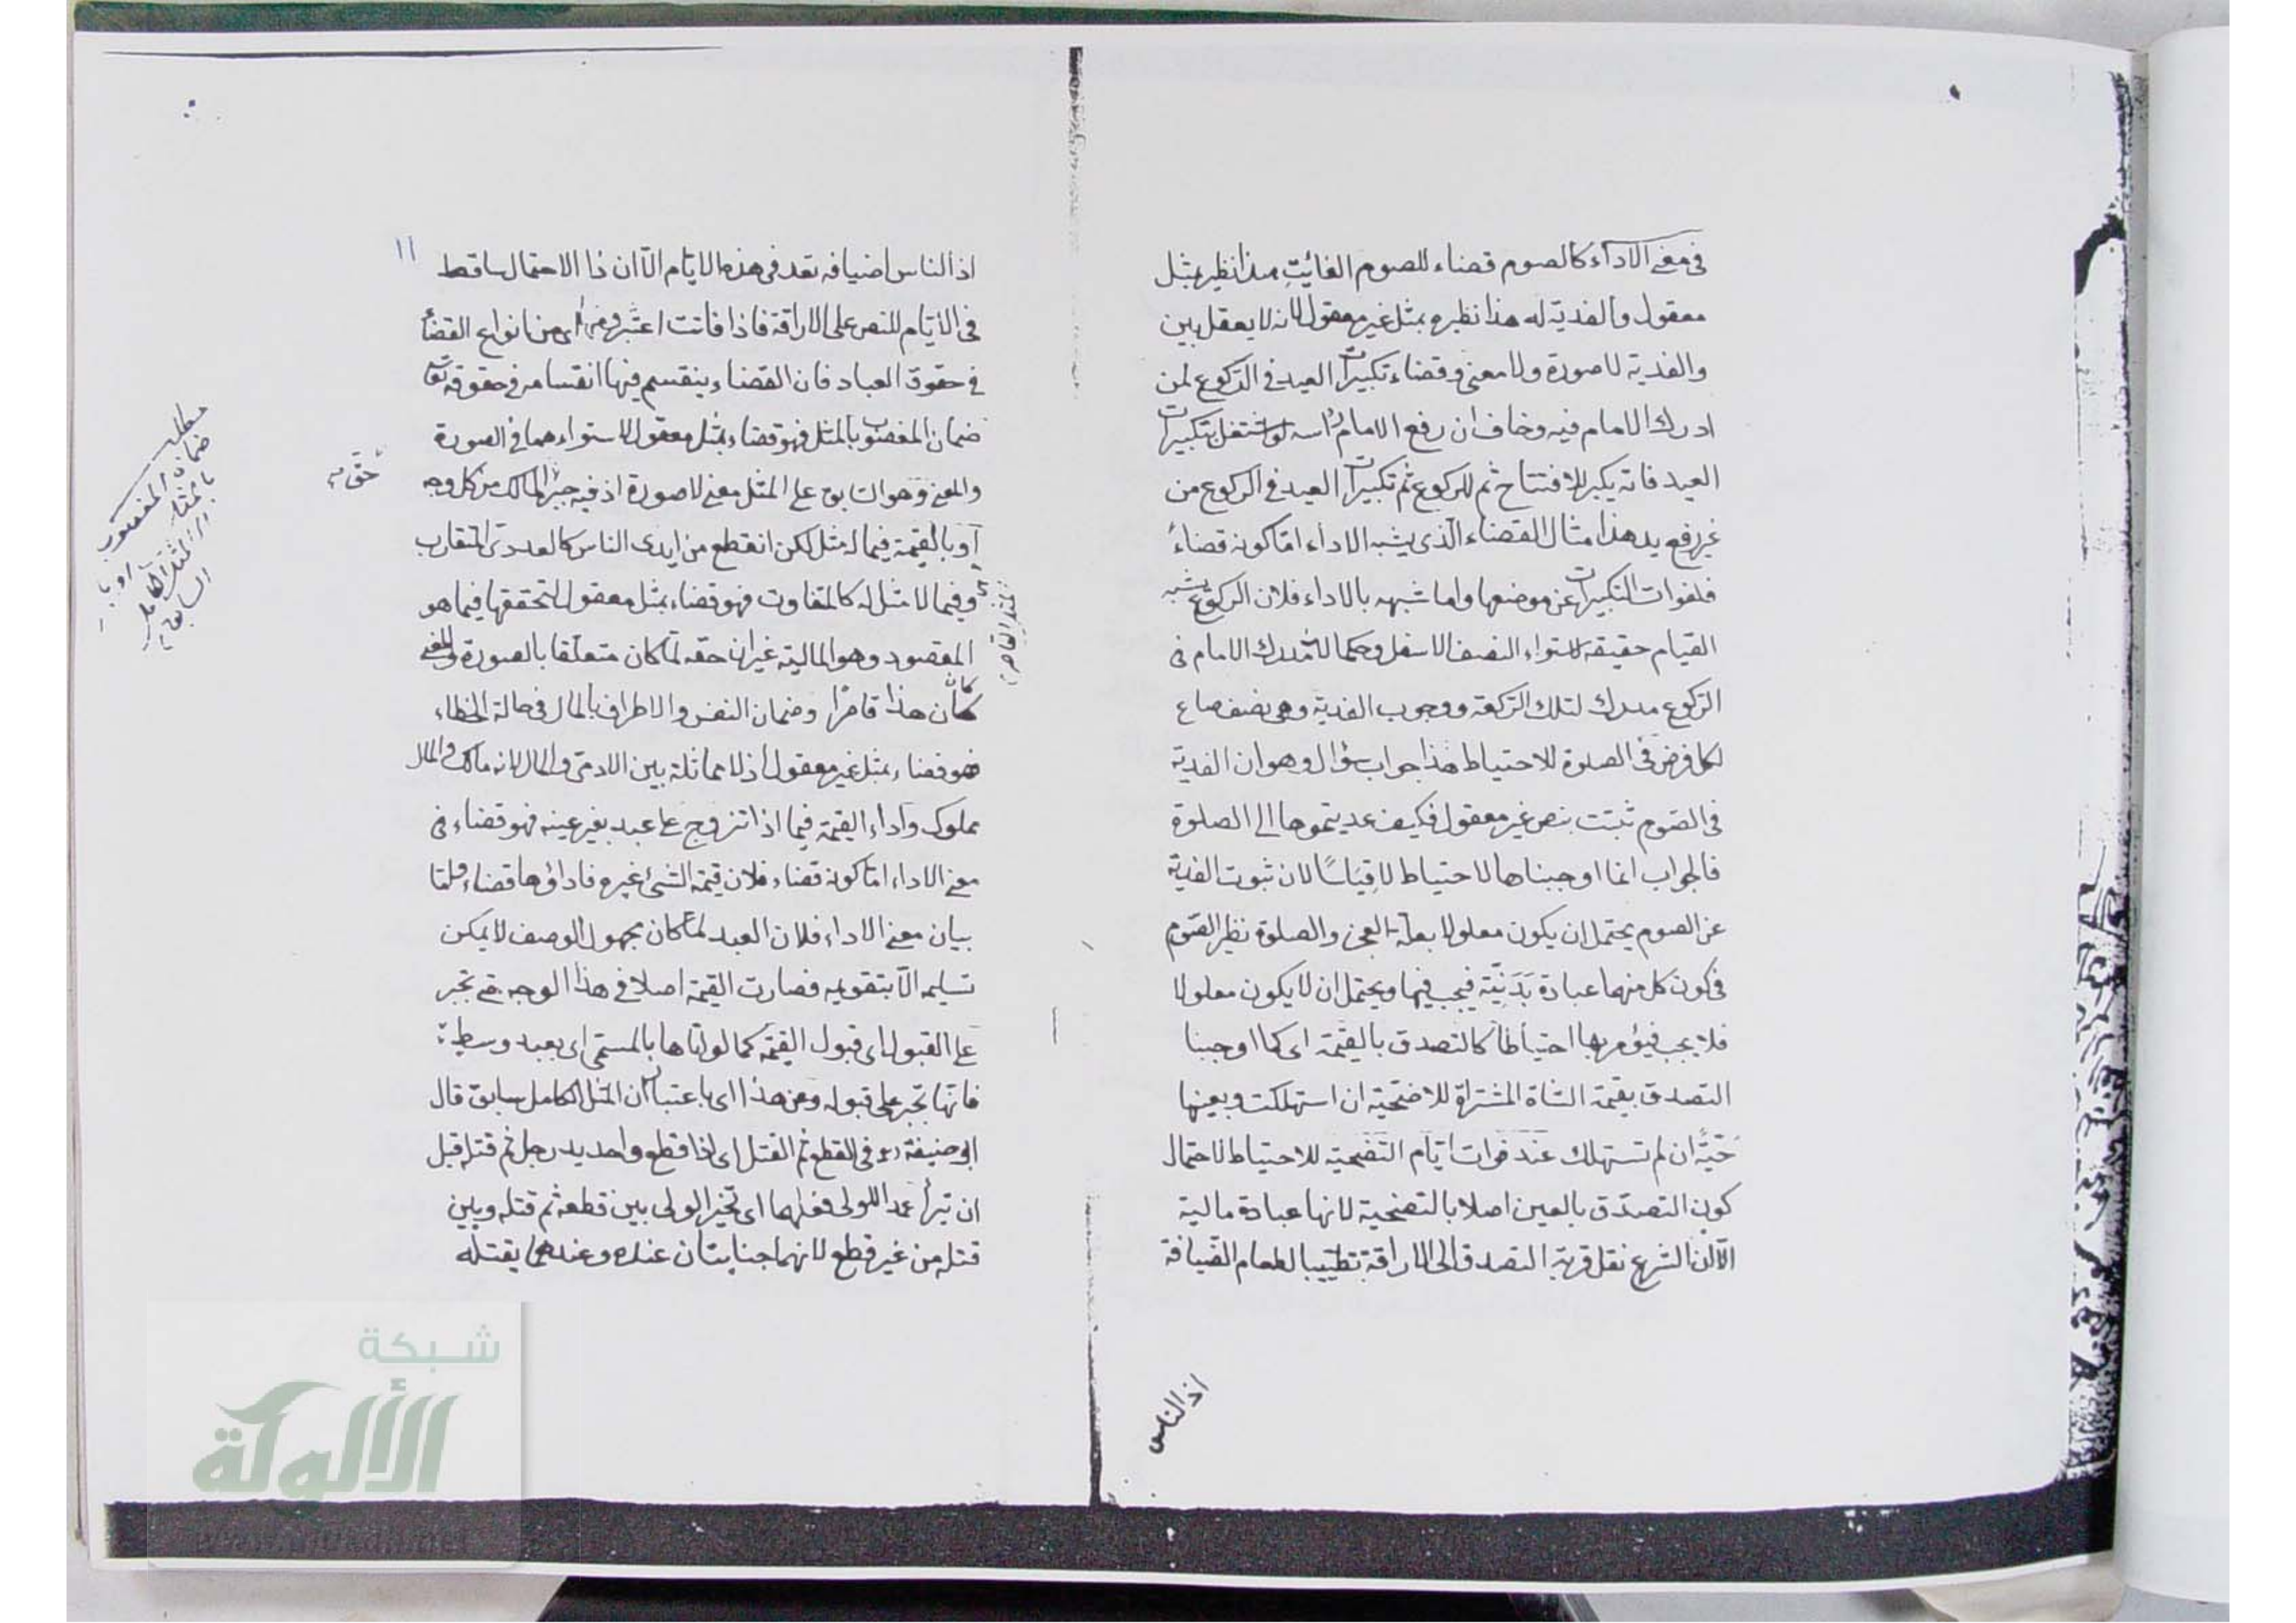 في معنى الاداء كالصوم قضاء للصوم الفائت هذا نظير بمثل
معقول والفدية له هذا نظيره بمثل غير معقول لانه لا يعقل بين
والفدية لا صورة ولا معنى وقضاء تكبيرات العيد في الركوع لمن
ادرك الامام فيه وخاف ان رفع الامام رأسه لو اشتغل بتكبيرات
العيد فانه يكبر للافتتاح ثم للركوع ثم تكبيرات العيد في الركوع من
غير رفع يد هذا مثال القضاء الذي يشبه الاداء امّا كونه قضاءً
فلفوات التكبيرات عن موضعها واما شبهه بالاداء فلان الركوع يشبه
القيام حقيقة لاستواء النصف الاسفل وحكما لان مدرك الامام في
الركوع مدرك لتلك الركعة ووجوب الفدية وهي نصف صاع
لكل فرض في الصلوة للاحتياط هذا جواب سؤال وهو ان الفدية
في الصوم ثبتت بنص غير معقول فكيف عديتموها الى الصلوة
فالجواب انما اوجبناها لاحتياط لا قياسًا لان ثبوت الفدية
عن الصوم يحتمل ان يكون معلولا بعلة العجز والصلوة نظير الصوم
في كون كل منهما عبادة بَدَنِيّة فيجب فيها ويحتمل ان لا يكون معلولا
فلا يجب فيؤمر بها احتياطًا كالتصدق بالقيمة اى كما اوجبنا
التصدق بقيمة الشاة المشتراة للاضحية ان استهلكت وبعينها
حيّةً ان لم تستهلك عند فوات ايّام التضحية للاحتياط لاحتمال
كون التصدّق بالعين اصلا بالتضحية لانها عبادة مالية
الّا ان الشرع نقل قربة التصدق الى الاراقة تطييبا لطعام الضيافة
اذ الناس
١١
اذ الناس اضيافه تعد في هذه الايّام الّا ان ذا الاحتمال ساقط
في الايّام للنص على الاراقة فاذا فاتت اعتبر ومنها اى من انواع القضاء
في حقوق العباد فان القضاء ينقسم فيها انقسامه في حقوقه تعا
ضمان المغصوب بالمثل فهو قضاء بمثل معقول لاستوائهما في الصورة
والمعنى وهو السابق على المثل معنى لا صورة اذ فيه جبر المالك من كل وجه
حقّ
أو بالقيمة فيما له مثل لكن انقطع من ايدى الناس كالعددى المتقارب
وفيما لا مثل له كالمتفاوت فهو قضاء بمثل معقول لتحققها فيما هو
المقصود وهو المالية غير ان حقه لمّا كان متعلّقا بالصورة والمعنى
كان هذا قاصرًا وضمان النفس والاطراف بالمال في حالة الخطاء
فهو قضاء بمثل غير معقول اذ لا مماثلة بين الادمى والمال لانه مالك والمال
مملوك واداء القيمة فيما اذا تزوج على عبد بغير عينه فهو قضاء في
معنى الاداء امّا كونه قضاء فلان قيمة الشئ غيره فاداؤها قضاء وامّا
بيان معنى الاداء فلان العبد لمّا كان مجهول الوصف لا يمكن
تسليمه الّا بتقويمه فصارت القيمة اصلا في هذا الوجه حتى تجبر
على القبول اى قبول القيمة كما لو اتاها بالمسمّى اى بعبد وسط
فانّها تجبر على قبوله وعن هذا اى باعتبار ان المثل الكامل سابق قال
ابو حنيفة ره في القطع ثم القتل اى اذا قطع واحد يد رجل ثم قتله قبل
ان تبرأ عمدا للولى فعلهما اى تخير الولى بين قطعه ثم قتله وبين
قتله من غير قطع لانهما جنايتان عنده وعندهما يقتله
مطلب
ضمان المغصوب
شبكة
الألوكة